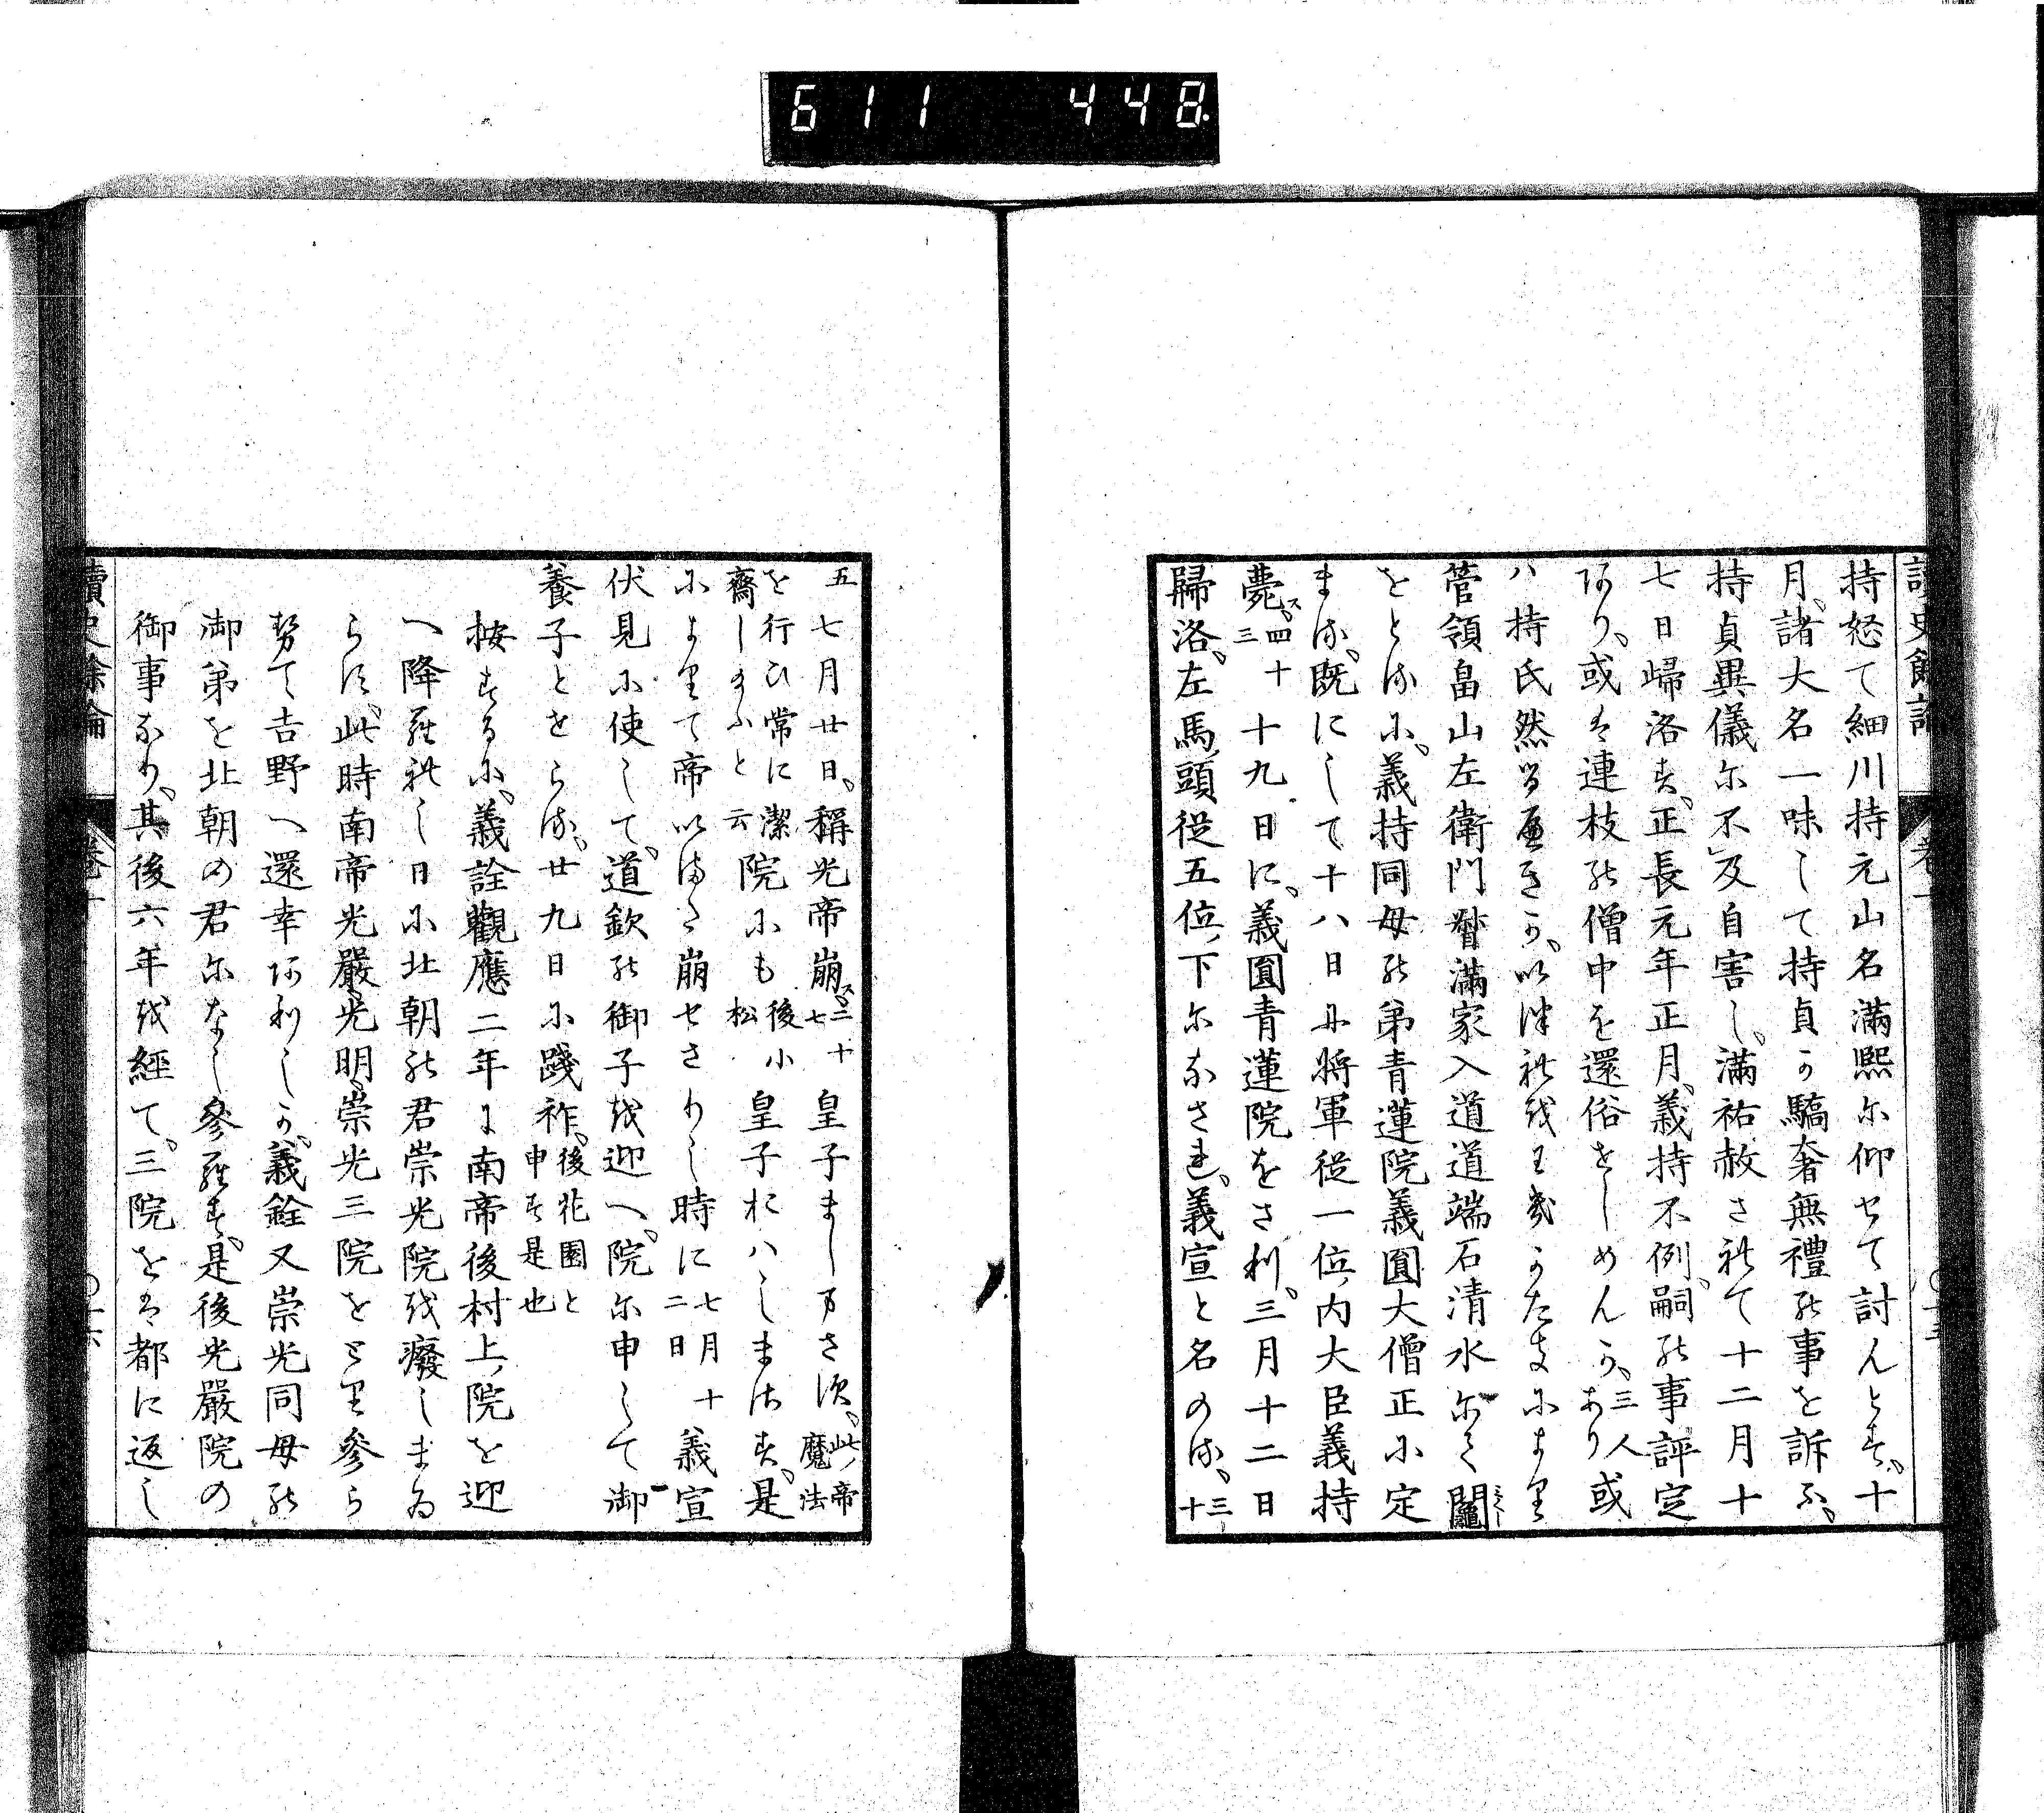 611 448.
讀史餘論 卷十一 〇十五
持怒て細川持元山名滿熙尓仰せて討んとす、十
月、諸大名一味して持貞可驕奢無禮能事を訴ふ、
持貞異儀尓不及自害し、滿祐赦され て十二月十
七日歸洛す、正長元年正月、義持不例、嗣能事評定
あり、或は連枝能僧中を還俗せしめんか、三人あり或
八持氏然るべきか、以
管領畠山左衛門督滿家入道道端石清水尓て鬮
をとる尓、義持同母能弟青蓮院義圓大僧正尓定
まる、既にして十八日尓將軍從一位内大臣義持
薨ス、四十三 十九日に、義圓青蓮院をさり、三月十二日
歸洛、左馬頭從五位下尓なされ、義宣と名のる、三十
五 七月廿日、稱光帝崩ス、二十七 皇子ましまさす、此帝魔法
を行ひ常に潔齋し給ふと云 院尓も後小松 皇子おハしまさす、是
尓よりて帝いまた崩せさりし時に七月十二日 義宣
伏見尓使して、道欽能御子を迎へ、院尓申して御
養子とせらる、廿九日尓踐祚、後花園と申す是也
按する尓、義詮觀應二年に南帝後村上院を迎
へ降られし日尓北朝能君崇光院を癈しまゐ
らす、此時南帝光嚴光明崇光三院をとり參ら
せて吉野へ還幸ありしか、義銓又崇光同母能
御弟を北朝の君尓なし參らす、是後光嚴院の
御事なり、其後六年を經て、三院をは都に返し
讀史餘論 卷十一 〇十六